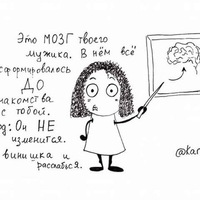 Это МОЗГ твоего
мужика. В нём всё
сформировалось
ДО
знакомства
с тобой.
Он НЕ
изменится.
винишка и
расслабься.
@kar